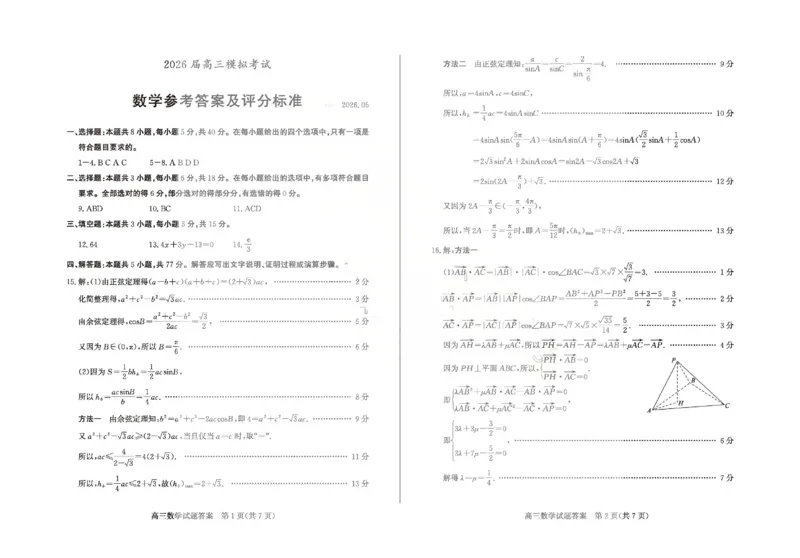 2026届高三模拟考试
数学参考答案及评分标准
2026.05
一、选择题:本题共8小题,每小题5分,共40分。在每小题给出的四个选项中,只有一项是
符合题目要求的。
1-4. B C A C 5-8. A B D D
二、选择题:本题共3小题,每小题6分,共18分。在每小题给出的选项中,有多项符合题目
要求。全部选对的得6分,部分选对的得部分分,有选错的得0分。
9. ABD 10. BC 11. ACD
三、填空题:本题共3小题,每小题5分,共15分。
12. 64 13. 4x+3y-13=0 14. e/3
四、解答题:本题共5小题,共77分。解答应写出文字说明、证明过程或演算步骤。
15. 解:(1)由正弦定理得(a-b+c)(a+b+c)=(2+√3)ac, 2分
化简整理得,a²+c²-b²=√3ac. 3分
由余弦定理得,cosB=(a²+c²-b²)/2ac=√3/2, 5分
又因为B∈(0,π),所以B=π/6. 6分
(2)因为S=1/2bh_b=1/2acsinB,
所以h_b=acsinB/b=1/4ac. 8分
方法一 由余弦定理知:b²=a²+c²-2accosB,即4=a²+c²-√3ac. 9分
又a²+c²-√3ac≥(2-√3)ac,当且仅当a=c时,取"=".
所以,ac≤4/(2-√3)=4(2+√3). 11分
所以,h_b=1/4ac≤2+√3,故(h_b)max=2+√3. 13分
高三数学试题答案 第1页(共7页)
方法二 由正弦定理知,a/sinA=c/sinC=2/sin π/6=4. 9分
所以,a=4sinA,c=4sinC,
所以,h_b=1/4ac=4sinAsinC 10分
=4sinAsin(5π/6-A)=4sinAsin(A+π/6)=4sinA(√3/2sinA+1/2cosA)
=2√3sin²A+2sinAcosA=sin2A-√3cos2A+√3
=2sin(2A-π/3)+√3. 12分
又因为2A-π/3∈(-π/3,4π/3),
所以,当2A-π/3=π/2时,即A=5π/12时,(h_b)max=2+√3. 13分
16. 解:方法一
(1)AB·AC=|AB|·|AC|·cos∠BAC=√3×√7×√3/√7=3. 1分
AB·AP=|AB||AP|cos∠BAP=(AB²+AP²-PB²)/2=(5+3-5)/2=3/2, 2分
AC·AP=|AC||AP|cos∠BAP=√7×√5×√35/14=5/2. 3分
因为AH=λAB+μAC,所以PH=AH-AP=λAB+μAC-AP. 4分
因为PH⊥平面ABC,所以,{PH·AB=0
PH·AC=0.
即{λAB²+μAB·AC-AB·AP=0
λAB·AC+μAC²-AC·AP=0,
即{3λ+3μ-3/2=0
3λ+7μ-5/2=0, 6分
解得λ=μ=1/4. 7分
P
B
H
A
C
高三数学试题答案 第2页(共7页)